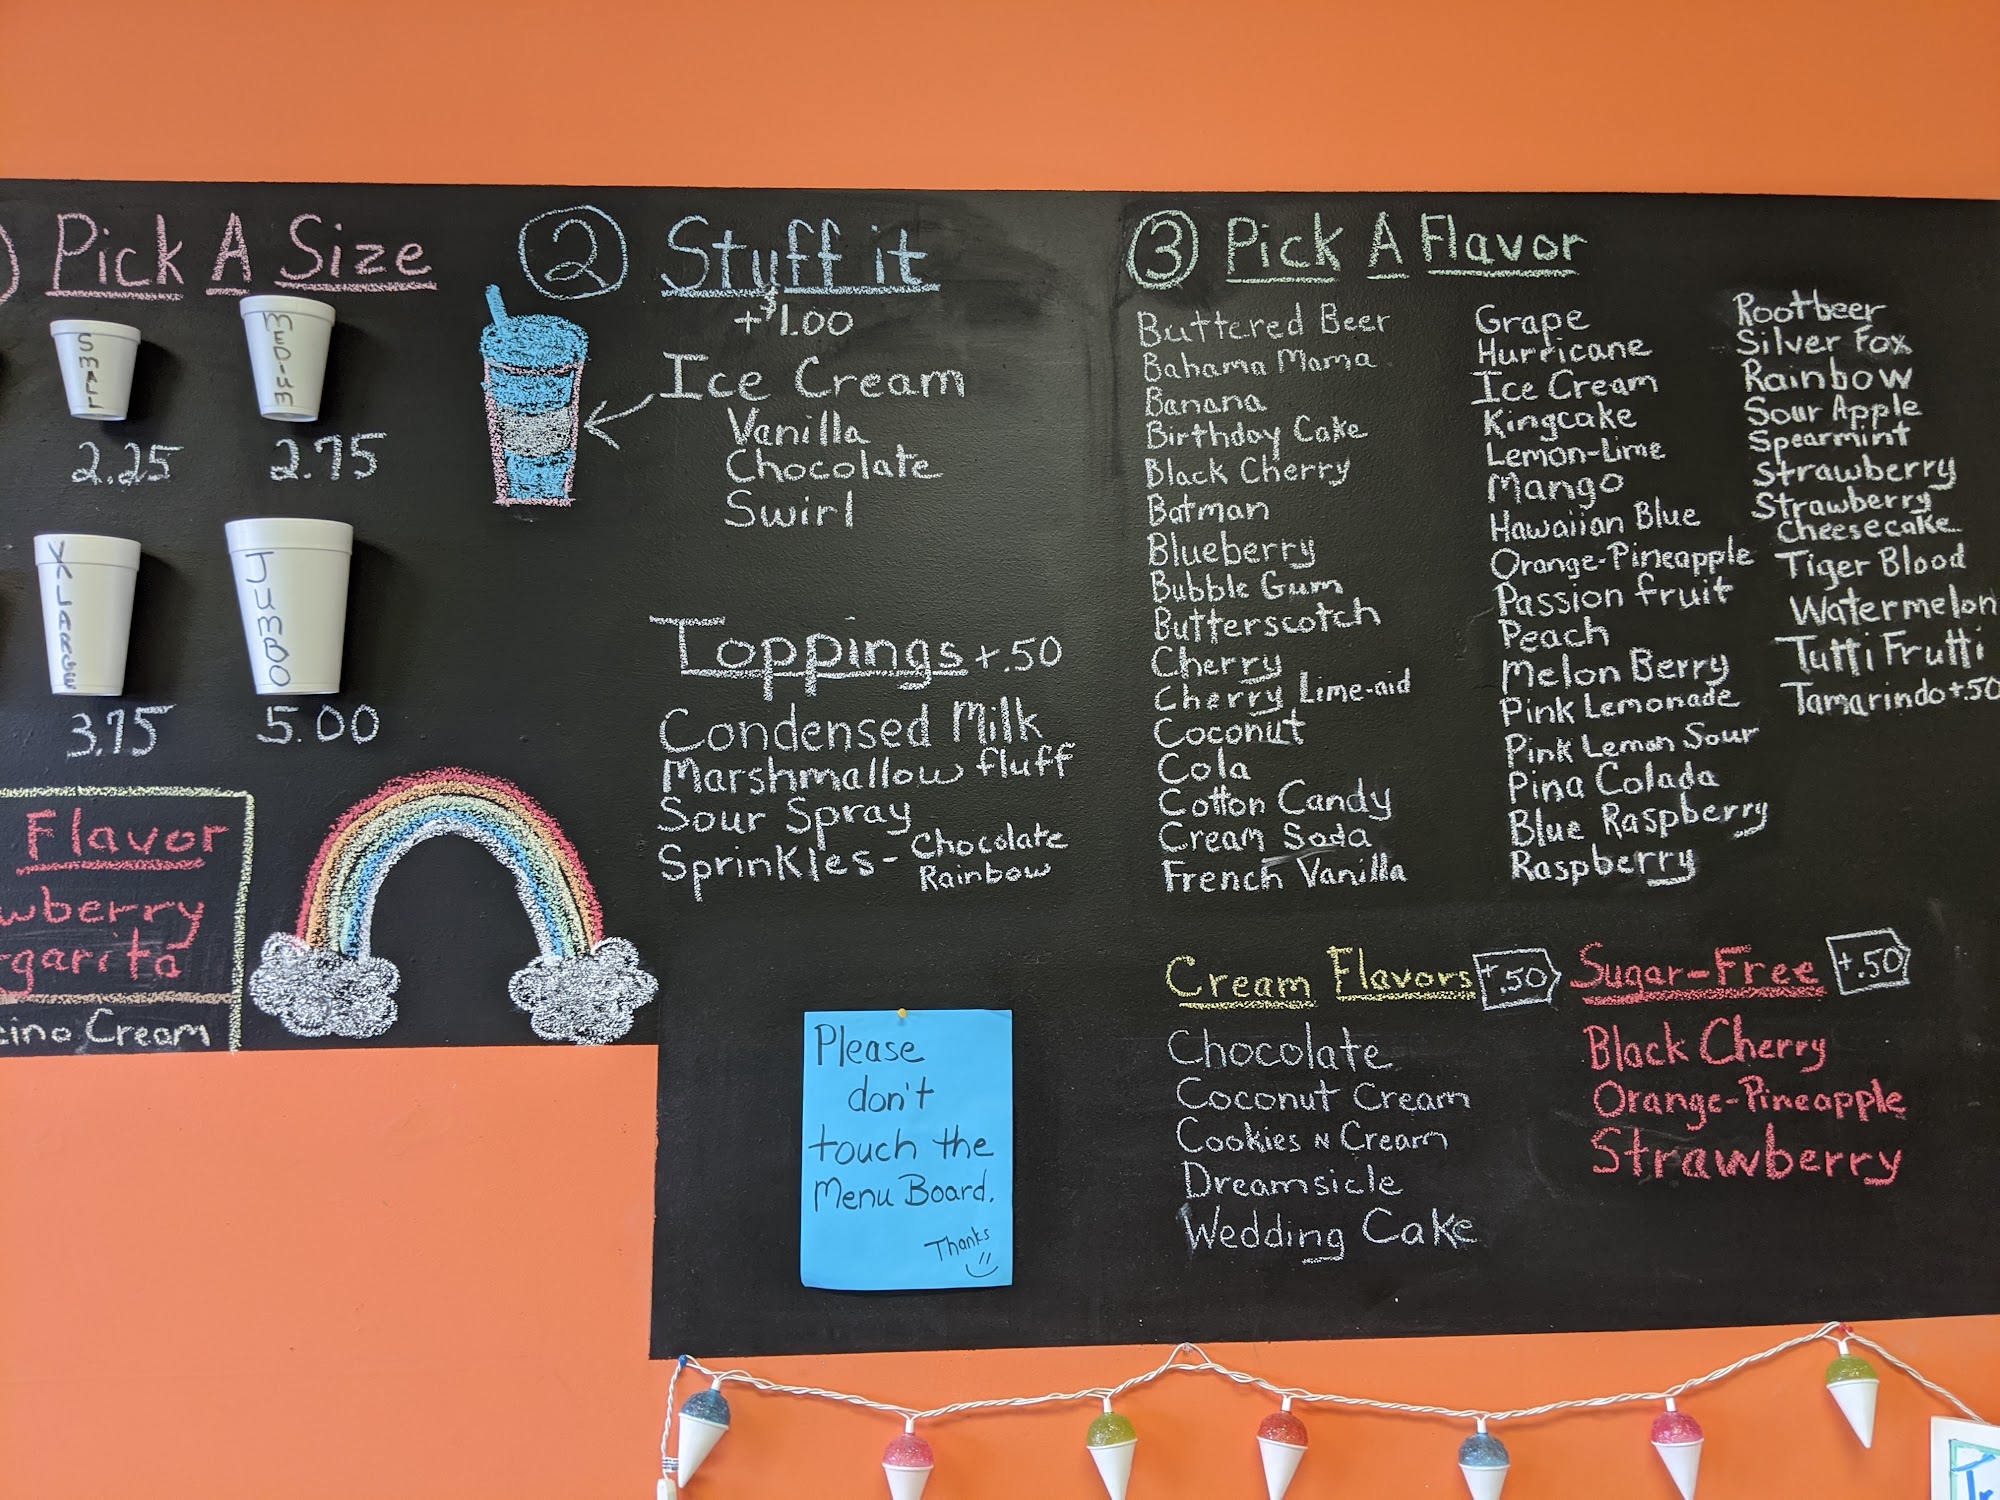 Pick A Size
SMALL
MEDIUM
2.25
2.75
XLARGE
JUMBO
3.75
5.00
Flavor
cino Cream
2 Stuff it
+$1.00
Ice Cream
Vanilla
Chocolate
Swirl
Toppings +.50
Condensed Milk
Marshmallow fluff
Sour Spray
Sprinkles- Chocolate
Rainbow
Please
don't
touch the
Menu Board.
Thanks
3 Pick A Flavor
Buttered Beer
Bahama Mama
Banana
Birthday Cake
Black Cherry
Batman
Blueberry
Bubble Gum
Butterscotch
Cherry
Cherry Lime-aid
Coconut
Cola
Cotton Candy
Cream Soda
French Vanilla
Grape
Hurricane
Ice Cream
Kingcake
Lemon-Lime
Mango
Hawaiian Blue
Orange-Pineapple
Passion fruit
Peach
Melon Berry
Pink Lemonade
Pink Lemon Sour
Pina Colada
Blue Raspberry
Raspberry
Rootbeer
Silver Fox
Rainbow
Sour Apple
Spearmint
Strawberry
Strawberry
Cheesecake
Tiger Blood
Watermelon
Tutti Frutti
Tamarindo +.50
Cream Flavors +.50
Chocolate
Coconut Cream
Cookies N Cream
Dreamsicle
Wedding Cake
Sugar-Free +.50
Black Cherry
Orange-Pineapple
Strawberry